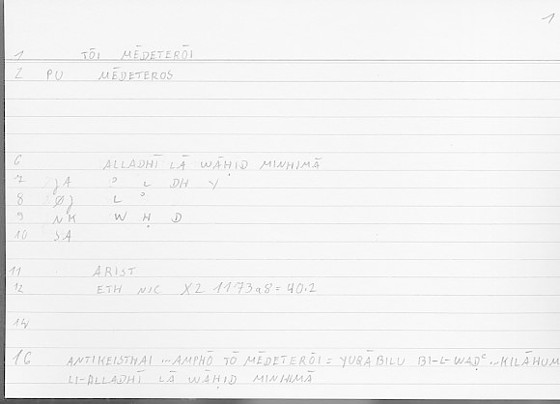 1
1 TŌI MĒDETERŌI
2 PU MĒDETEROS
6 ALLADHĪ LĀ WĀḤID MINHIMĀ
7 JA ʾ L DH Y
8 ØJ L ʾ
9 NK W Ḥ D
10 SA
11 ARIST
12 ETH NIC X2 1173a8 = 40.2
14
16 ANTIKEISTHAI ... AMPHŌ TŌ MĒDETERŌI = YUQĀBILU BI-L-WAḌʿ ... KILĀHUM
LI-ALLADHĪ LĀ WĀḤID MINHIMĀ